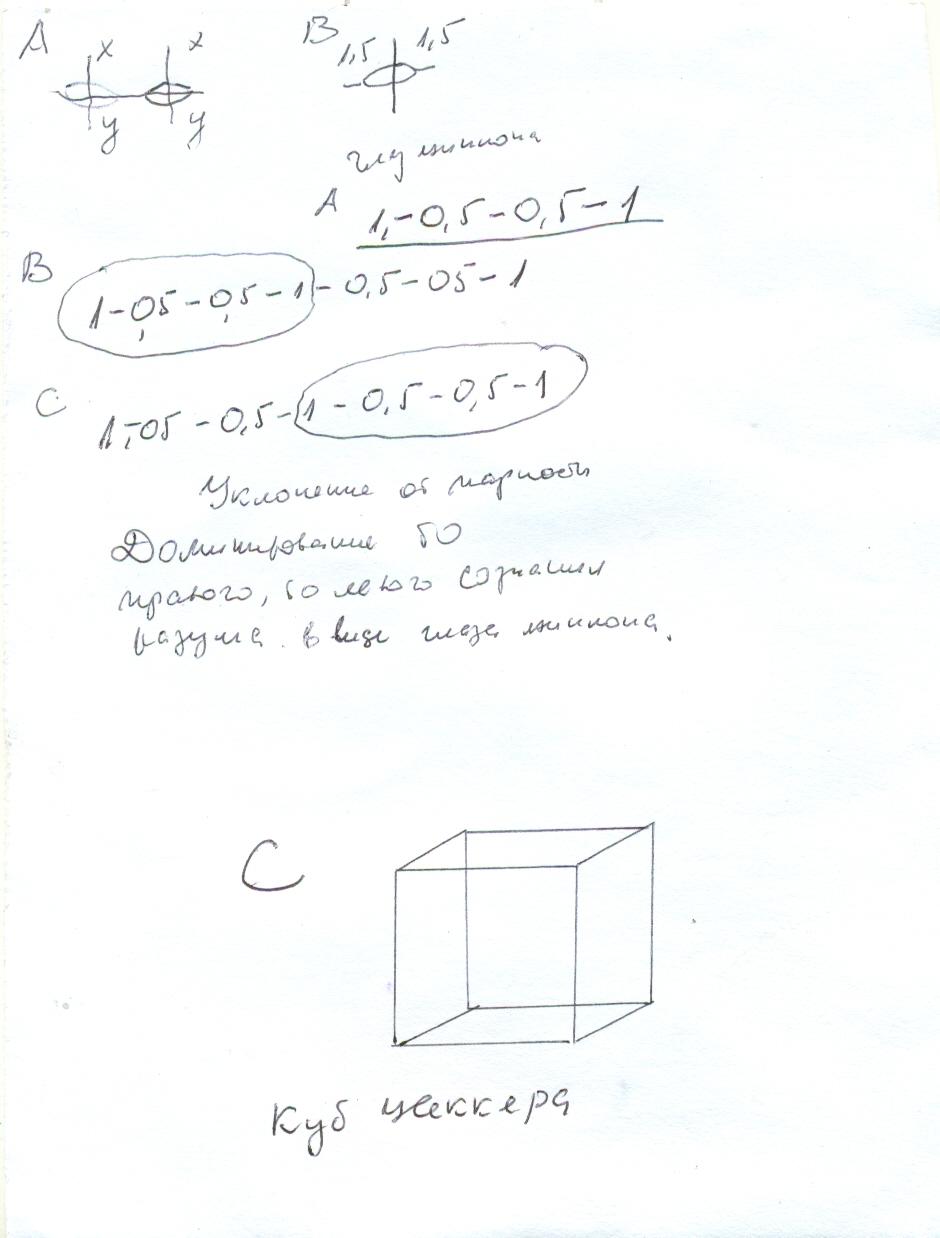 A
B
x x
1,5 1,5
y y
A 1,-0,5-0,5-1
B 1-0,5-0,5-1-0,5-05-1
C 1,-05-0,5-1-0,5-0,5-1
Уклонение от парности
Доминирование
правого, левого сознания
разума. в виде глаза циклопа.
C
Куб